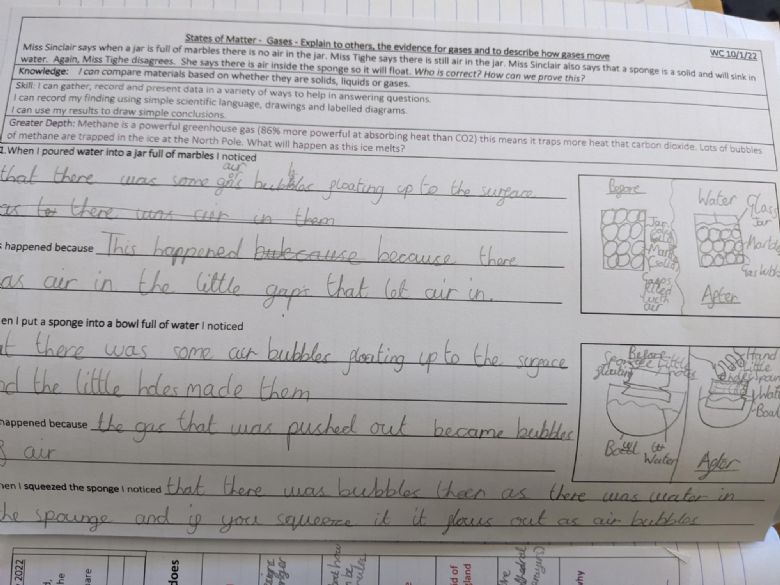 States of Matter - Gases - Explain to others, the evidence for gases and to describe how gases move
WC 10/1/22
Miss Sinclair says when a jar is full of marbles there is no air in the jar. Miss Tighe says there is still air in the jar. Miss Sinclair also says that a sponge is a solid and will sink in
water. Again, Miss Tighe disagrees. She says there is air inside the sponge so it will float. Who is correct? How can we prove this?
Knowledge: I can compare materials based on whether they are solids, liquids or gases.
Skill: I can gather, record and present data in a variety of ways to help in answering questions.
I can record my finding using simple scientific language, drawings and labelled diagrams.
I can use my results to draw simple conclusions.
Greater Depth: Methane is a powerful greenhouse gas (86% more powerful at absorbing heat than CO2) this means it traps more heat that carbon dioxide. Lots of bubbles
of methane are trapped in the ice at the North Pole. What will happen as this ice melts?
1. When I poured water into a jar full of marbles I noticed
air
or
that there was some gas bubbles floating up to the surface
as to there was air in them
happened because This happened because there
as air in the little gaps that let air in.
en I put a sponge into a bowl full of water I noticed
t there was some air bubbles floating up to the surface
nd the little holes made them
happened because the gas that was pushed out became bubbles
air
hen I squeezed the sponge I noticed that there was bubbles then as there was water in
he spounge and if you squeeze it it flows out as air bubbles
Before
Jar
Gaps
filled
with
air
Water
Glass
Jar
Marbl
After
Before
floating
little
holes
Water
Hand
little
holes
Wat
After
2022
he
are
does
d of
gland
why